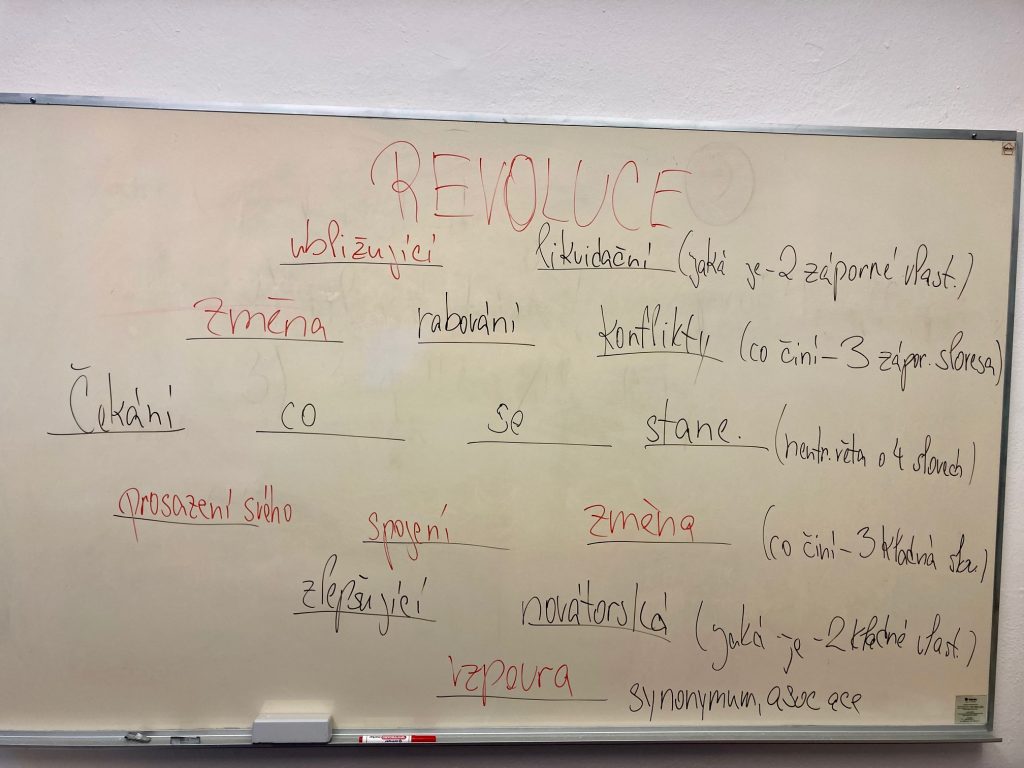 REVOLUCE
ubližující likvidační (jaká je - 2 záporné vlast.)
změna rabování konflikty (co činí - 3 zápor. slovesa)
Čekání co se stane. (neutr. věta o 4 slovech)
prosazení svého spojení změna (co činí - 3 kladná slov.)
zlepšující novátorská (jaká je - 2 kladné vlast.)
vzpoura synonymum, asociace